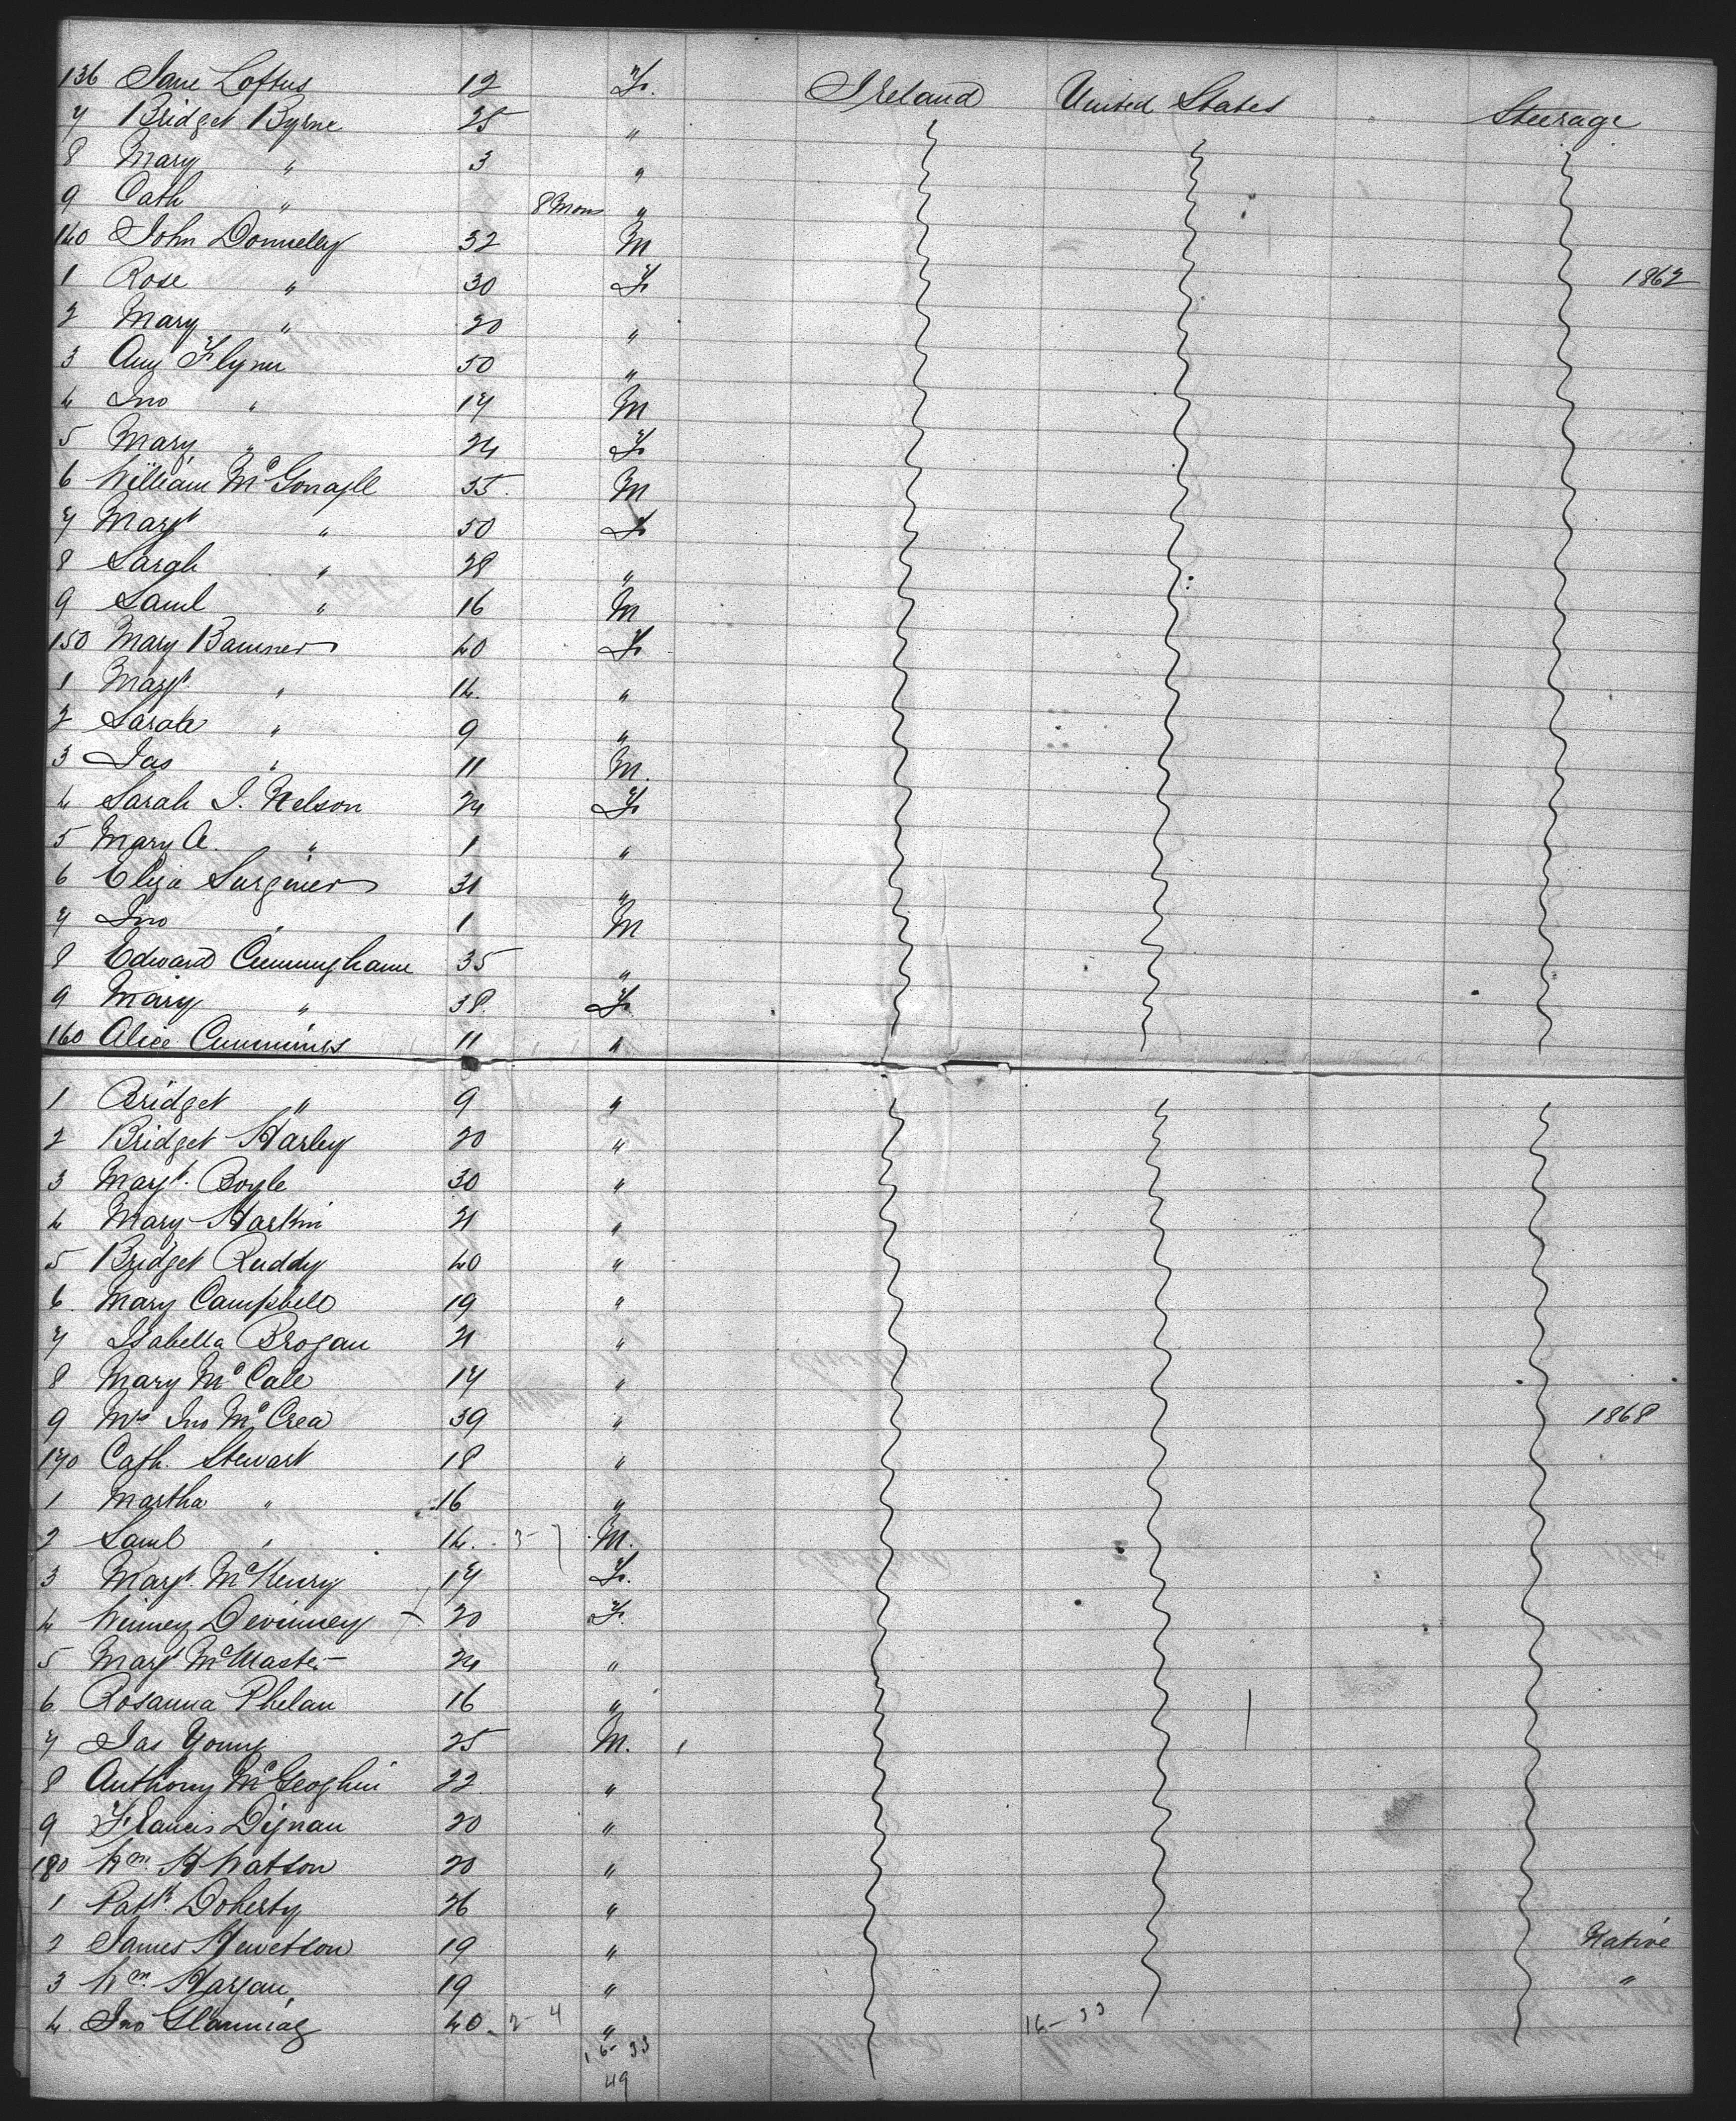 136 Jane Loftus 12 F. Ireland United States Steerage
7 Bridget Byrne 25 "
8 Mary " 3 "
9 Cath " 8 Mons "
140 John Donnelly 32 M
1 Rose " 30 F 1862
2 Mary " 20 "
3 Ann Flynn 50 "
4 Jno " 17 M
5 Mary " 24 F
6 William McGonagll 55. M
7 Margt " 50 F
8 Sarah " 28 "
9 Saml " 16 M
150 Mary 40 F
1 Margt. " 14. "
2 Sarah " 9 "
3 Jas " 11 M.
4 Sarah J. Nelson 24 F
5 Mary A. " 1 "
6 Eliza Surginer 31 "
7 Jno " 1 M
8 Edward Cunningham 35 "
9 Mary " 38. F
160 Alice Cummings 11 "
1 Bridget " 9 "
2 Bridget Harley 20 "
3 Margt. Boyle 30 "
4 Mary Harkin 21 "
5 Bridget Ruddy 40 "
6. Mary Campbell 19 "
7 Isabella Brogan 21 "
8 Mary McCall 17 "
9 Mrs Jno McCrea 39 " 1868
170 Cath. Stewart 18 "
1 Martha " 16 "
2 Saml " 14. 3- 7 M.
3 Margt. McKenry 17 F.
4 Winney Devinney 20 F.
5 Margt McMaster 24 "
6 Rosanna Phelan 16 "
7 Jas Young 25 M.
8 Anthony McGeoghin 22 "
9 Francis Dignan 20 "
180 Wm. H Watson 20 "
1 Patk. Doherty 26 "
2 James Hewetson 19 " Native
3 Wm. Hargan 19 " "
4. Jno 40. 2- 4 " 16-33
16-33
49